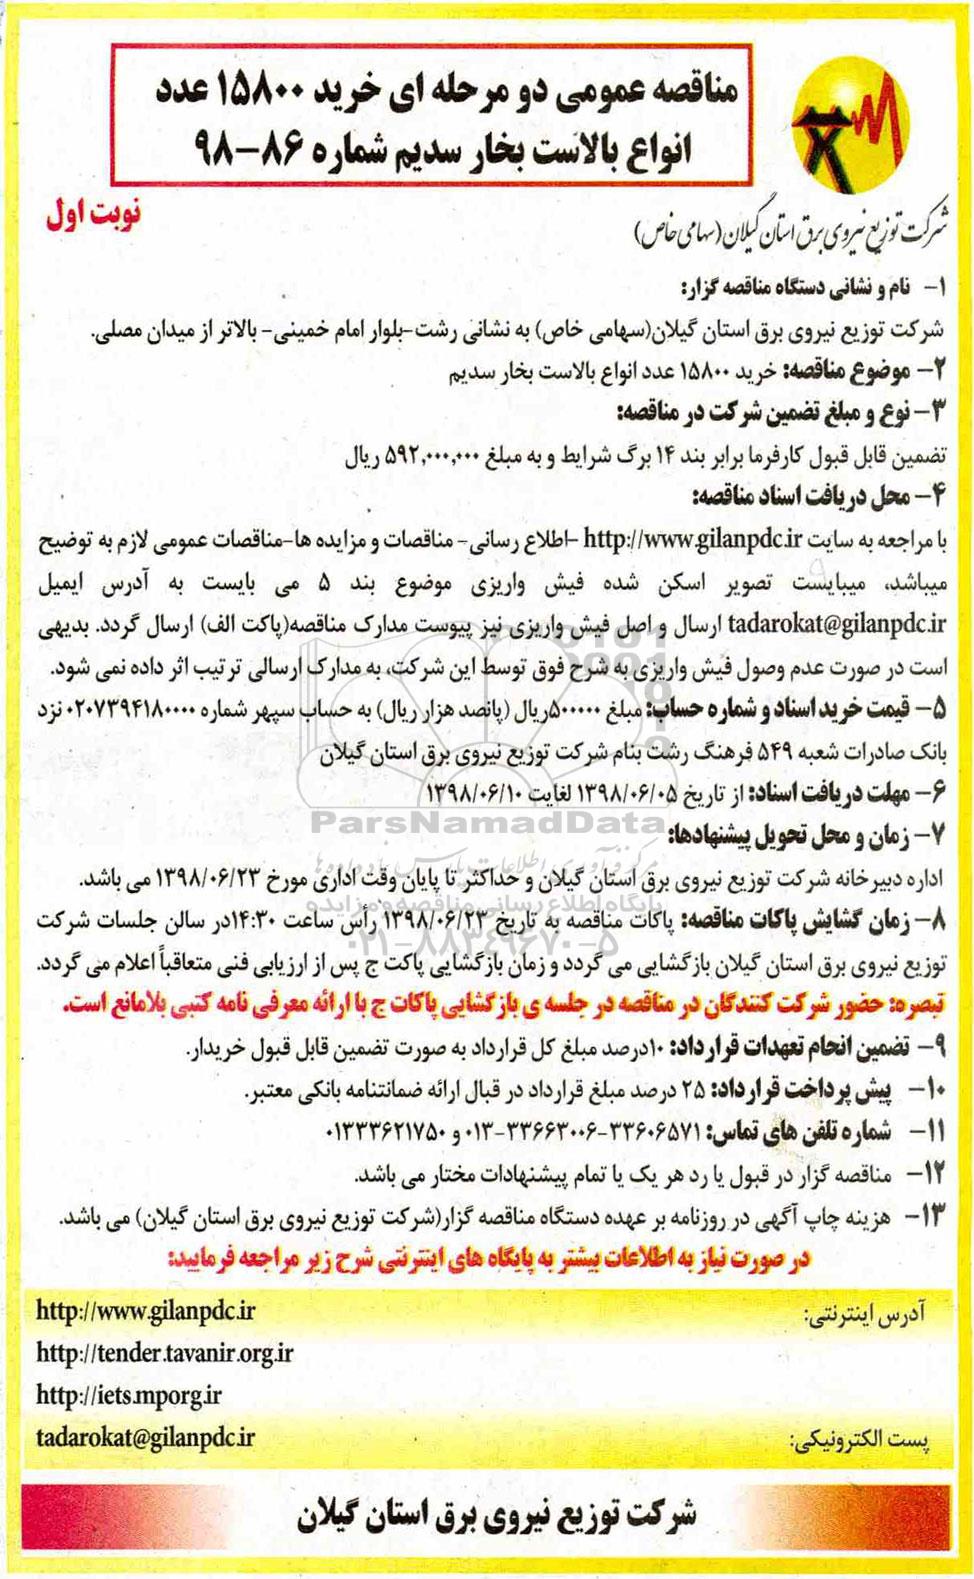 مناقصه عمومی دو مرحله ای خرید ۱۵۸۰۰ عدد
انواع بالاست بخار سدیم شماره ۸۶-۹۸
نوبت اول
شرکت توزیع نیروی برق استان گیلان(سهامی خاص)
۱- نام و نشانی دستگاه مناقصه گزار:
شرکت توزیع نیروی برق استان گیلان(سهامی خاص) به نشانی رشت-بلوار امام خمینی- بالاتر از میدان مصلی.
۲- موضوع مناقصه: خرید ۱۵۸۰۰ عدد انواع بالاست بخار سدیم
۳- نوع و مبلغ تضمین شرکت در مناقصه:
تضمین قابل قبول کارفرما برابر بند ۱۴ برگ شرایط و به مبلغ ۵۹۲,۰۰۰,۰۰۰ ریال
۴- محل دریافت اسناد مناقصه:
با مراجعه به سایت http://www.gilanpdc.ir -اطلاع رسانی- مناقصات و مزایده ها-مناقصات عمومی لازم به توضیح
میباشد، میبایست تصویر اسکن شده فیش واریزی موضوع بند ۵ می بایست به آدرس ایمیل
tadarokat@gilanpdc.ir ارسال و اصل فیش واریزی نیز پیوست مدارک مناقصه(پاکت الف) ارسال گردد. بدیهی
است در صورت عدم وصول فیش واریزی به شرح فوق توسط این شرکت، به مدارک ارسالی ترتیب اثر داده نمی شود.
۵- قیمت خرید اسناد و شماره حساب: مبلغ ۵۰۰۰۰۰ریال (پانصد هزار ریال) به حساب سپهر شماره ۰۲۰۷۳۹۴۱۸۰۰۰۰ نزد
بانک صادرات شعبه ۵۴۹ فرهنگ رشت بنام شرکت توزیع نیروی برق استان گیلان
۶- مهلت دریافت اسناد: از تاریخ ۱۳۹۸/۰۶/۰۵ لغایت ۱۳۹۸/۰۶/۱۰
ParsNamadData
۷- زمان و محل تحویل پیشنهادها:
مرکز فرآوری اطلاعات پارس نماد داده ها
اداره دبیرخانه شرکت توزیع نیروی برق استان گیلان و حداکثر تا پایان وقت اداری مورخ ۱۳۹۸/۰۶/۲۳ می باشد.
پایگاه اطلاع رسانی مناقصه و مزایده
۸- زمان گشایش پاکات مناقصه: پاکات مناقصه به تاریخ ۱۳۹۸/۰۶/۲۳ رأس ساعت ۱۴:۳۰در سالن جلسات شرکت
۰۲۱-۸۸۳۴۹۶۷۰-۵
توزیع نیروی برق استان گیلان بازگشایی می گردد و زمان بازگشایی پاکت ج پس از ارزیابی فنی متعاقباً اعلام می گردد.
تبصره: حضور شرکت کنندگان در مناقصه در جلسه ی بازگشایی پاکات ج با ارائه معرفی نامه کتبی بلامانع است.
۹- تضمین انجام تعهدات قرارداد: ۱۰درصد مبلغ کل قرارداد به صورت تضمین قابل قبول خریدار.
۱۰- پیش پرداخت قرارداد: ۲۵ درصد مبلغ قرارداد در قبال ارائه ضمانتنامه بانکی معتبر.
۱۱- شماره تلفن های تماس: ۳۳۶۰۶۵۷۱-۳۳۶۶۳۰۰۶-۰۱۳ و ۰۱۳۳۳۶۲۱۷۵۰
۱۲- مناقصه گزار در قبول یا رد هر یک یا تمام پیشنهادات مختار می باشد.
۱۳- هزینه چاپ آگهی در روزنامه بر عهده دستگاه مناقصه گزار(شرکت توزیع نیروی برق استان گیلان) می باشد.
در صورت نیاز به اطلاعات بیشتر به پایگاه های اینترنتی شرح زیر مراجعه فرمایید:
آدرس اینترنتی: http://www.gilanpdc.ir
http://tender.tavanir.org.ir
http://iets.mporg.ir
پست الکترونیکی: tadarokat@gilanpdc.ir
شرکت توزیع نیروی برق استان گیلان